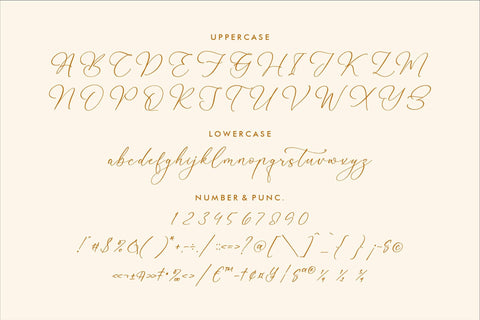 UPPERCASE
A B C D E F G H I J K L M
N O P Q R S T U V W X Y Z
LOWERCASE
abcdefghijklmnopqrstuvwxyz
NUMBER & PUNC.
1 2 3 4 5 6 7 8 9 0
! " # $ % ( ) * + - ÷ / : ; < = > ? @ [ \ ] ^ _ { } ¡ ~ § ©